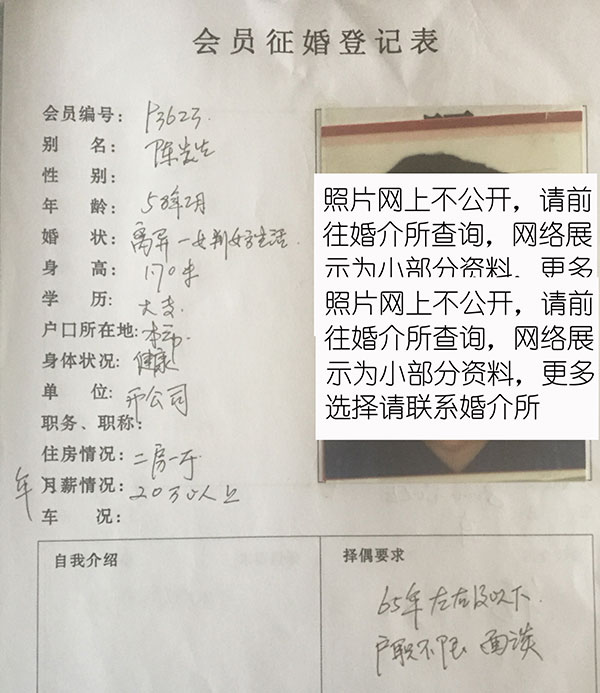 会员征婚登记表
会员编号: P3623
别 名: 陈先生
性 别:
年 龄: 58年2月
婚 状: 离异一女判女方生活.
身 高: 170米
学 历: 大专
户口所在地: 本市.
身体状况: 健康
单 位: 开公司
职务、职称:
住房情况: 二房一厅
年月薪情况: 20万以上
车 况:
照片网上不公开，请前
往婚介所查询，网络展
示为小部分资料，更多
照片网上不公开，请前
往婚介所查询，网络展
示为小部分资料，更多
选择请联系婚介所
自我介绍
择偶要求
65年左右及以下.
户职不限 面谈